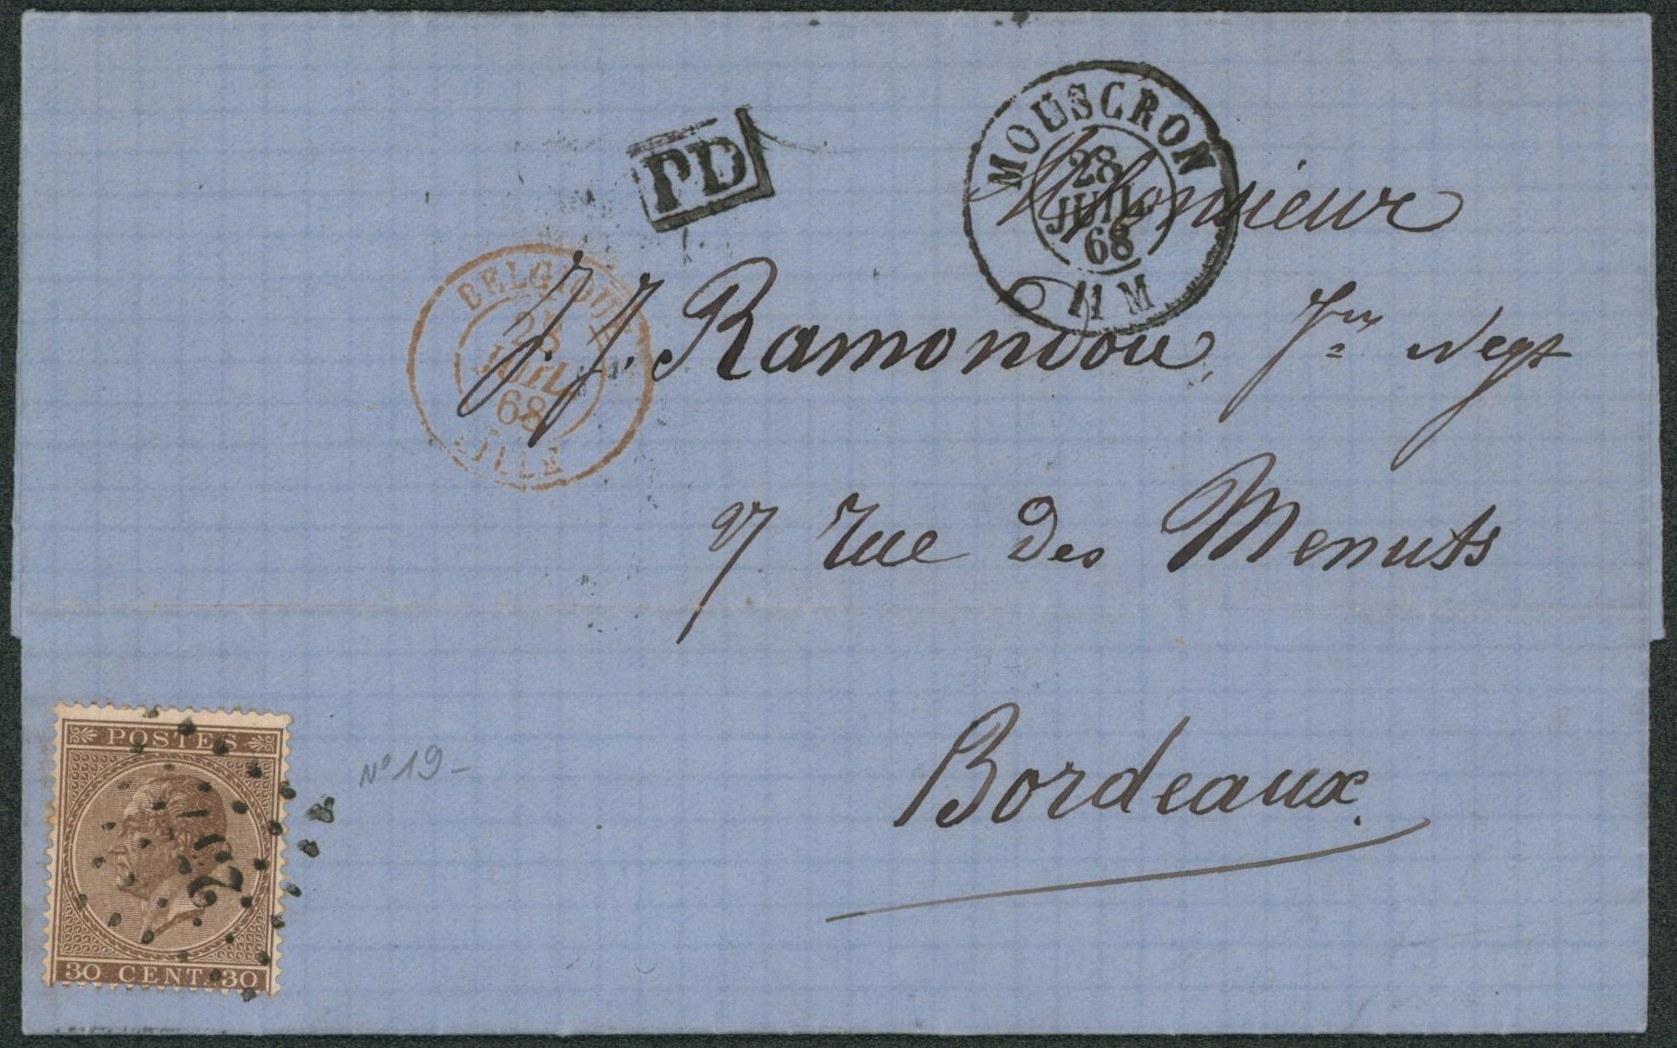 PD
MOUSCRON
28
JUIL
68
11 M
Monsieur
BELGIQUE
28
JUIL
68
LILLE
J. J. Ramondou Jne Negt
7 rue des Menuts
Bordeaux.
No 19 -
POSTES
30 CENT. 30